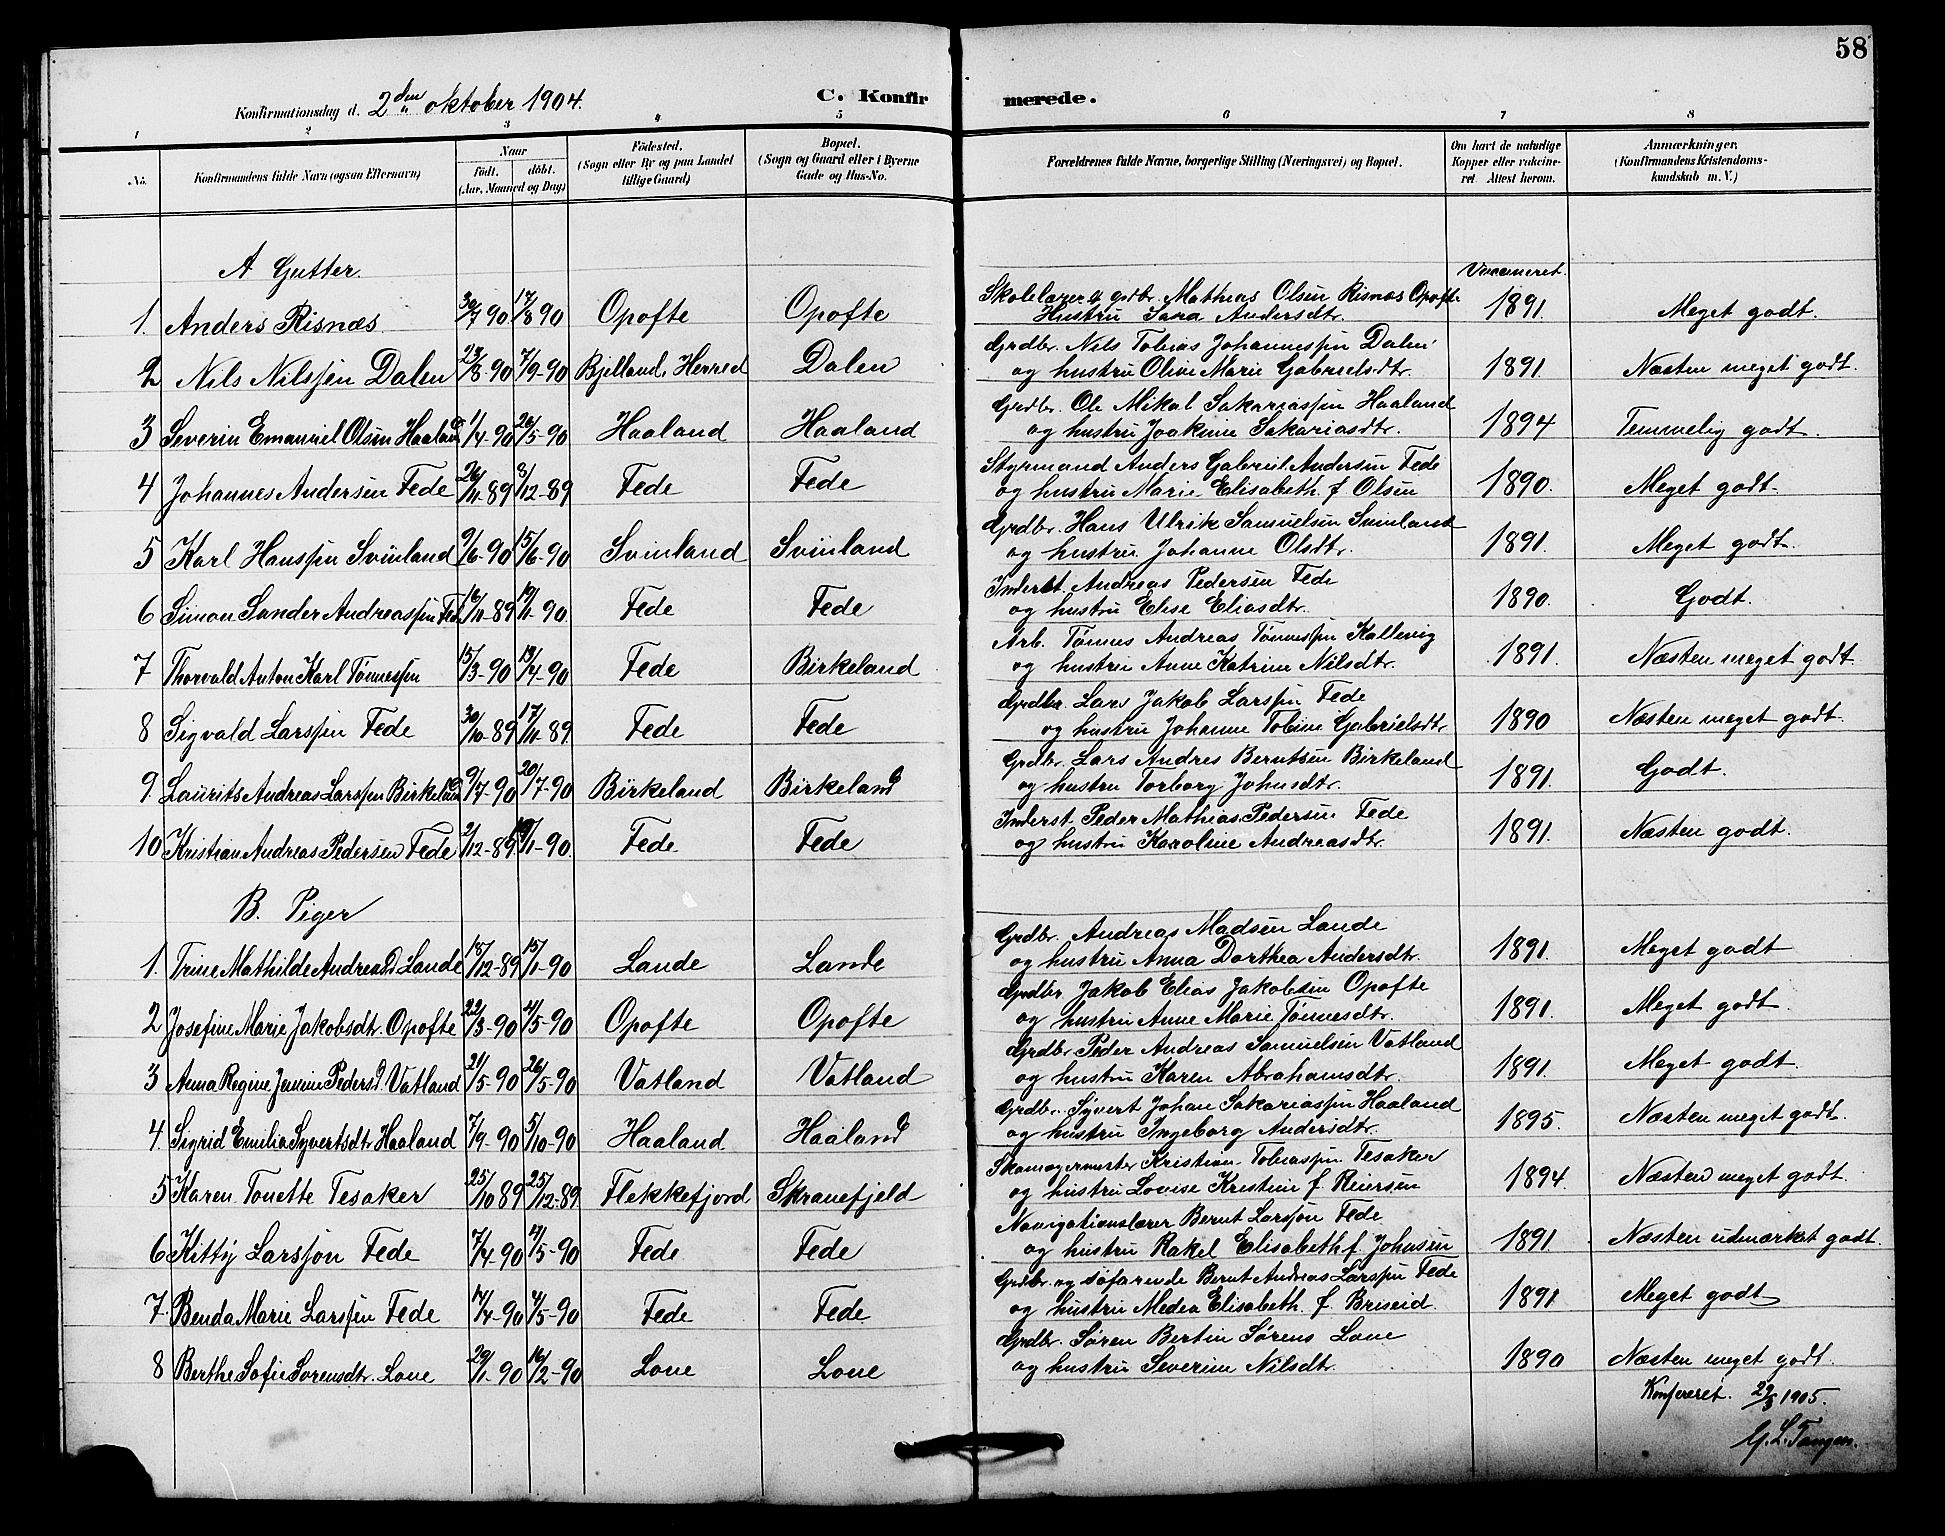 58
Konfirmationsdag d. 2den oktober 1904.
C. Konfirmerede.
1 2 3 4 5 6 7 8
No. Konfirmandens fulde Navn (ogsaa Efternavn) Naar födt. döbt. (Aar, Maaned og Dag) Födested. (Sogn eller By og paa Landet tillige Gaard) Bopæl. (Sogn og Gaard eller i Byerne Gade og Hus-No. Forældrenes fulde Navne, borgerlige Stilling (Næringsvei) og Bopæl. Om havt de naturlige Kopper eller vakcineret Attest herom. Anmærkninger. (Konfirmandens Kristendomskundskab m. V.)
A Gutter.
Vaccineret.
1. Anders Risnæs 30/7 90 17/8 90 Opofte Opofte Skolelærer & grdbr. Mathias Olsen Risnæs Opofte 1891. Meget godt.
Hustru Sara Andersdtr.
2 Nils Nilssen Dalen 23/8-90 7/9-90 Bjelland Herred Dalen Grdbr. Nils Tobias Johannessen Dalen 1891. Næsten meget godt.
og hustru Olive Marie Gabrielsdtr.
3 Severin Emanuel Olsen Haaland 1/4-90 26/5-90 Haaland Haaland Grdbr. Ole Mikal Sakariassen Haaland 1894 Temmelig godt.
og hustru Joakime Sakariasdtr.
4 Johannes Andersen Fede 26/11-89 8/12-89 Fede Fede Styrmand Anders Gabriel Andersen Fede 1890. Meget godt.
og hustru Marie Elisabeth f Olsen
5 Karl Hanssen Svinland 9/6-90 15/6-90 Svinland Svinland Grdbr. Hans Ulrik Samuelsen Svinland 1891. Meget godt.
og hustru Johanne Olsdtr.
6 Simon Sander Andreassen Fede 16/11-89 19/1-90 Fede Fede Inderst Andreas Pedersen Fede 1890. Godt.
og hustru Elise Eliasdtr.
7 Thorvald Anton Karl Tønnessen 15/3-90 13/4-90 Fede Birkeland Arb. Tønnes Andreas Tønnessen Kallevig 1891. Næsten meget godt
og hustru Anne Katrine Nilsdtr.
8 Sigvald Larssen Fede 30/10-89 17/11-89 Fede Fede Grdbr. Lars Jakob Larssen Fede 1890 Næsten meget godt.
og hustru Johanne Tobine Gabrielsdtr
9. Laurits Andreas Larssen Birkeland 9/7-90 20/7-90 Birkeland Birkeland Grdbr. Lars Andres Berntsen Birkeland 1891. Godt.
og hustru Torborg Johnsdtr.
10 Kristian Andreas Pedersen Fede 2/12-89 19/1-90 Fede Fede Inderst. Peder Mathias Pedersen Fede 1891. Næsten godt.
og hustru Karoline Andreasdtr.
B. Piger
1. Trine Mathilde Andreasd. Lande 18/12-89 15/1-90 Lande Lande Grdbr. Andreas Madsen Lande 1891. Meget godt
og hustru Anna Dorthea Andersdtr.
2 Josefine Marie Jakobsdtr. Opofte 22/3-90 4/5-90 Opofte Opofte Grdbr Jakob Elias Jakobsen Opofte 1891. Meget godt.
og hustru Anne Marie Tønnesdtr.
3 Anna Regine Janine Pedersd. Vatland 21/5-90 26/5-90 Vatland Vatland Grdbr. Peder Andreas Samuelsen Vatland 1891. Meget godt.
og hustru Karen Abrahamsdtr.
4. Sigrid Emilia Syvertsdtr Haaland 7/9-90 5/10-90 Haaland Haaland Grdbr. Syvert Johan Sakariassen Haaland 1895. Næsten meget godt.
og hustru Ingeborg Andersdtr.
5 Karen Tonette Tesaker 25/10 89 25/12-89 Flekkefjord Skranefjeld Skomagermester Kristian Tobiassen Tesaker 1894. Næsten meget godt.
og hustru Lovise Kristine f. Reiersen
6 Kitty Larsson Fede 7/4-90 17/5-90 Fede Fede Navigationslærer Bernt Larsson Fede 1891. Næsten udmærket godt.
og hustru Rakel Elisabeth f. Johnsen
7. Benda Marie Larssen Fede 14/4-90 4/5-90 Fede Fede Grdbr. og søfarende Bernt Andreas Larssen Fede 1891 Meget godt
og hustru Medea Elisabeth f. Briseid.
8 Berthe Sofie Sørensdtr. Lone 29/1-90 16/2-90 Lone Lone Grdbr. Søren Bertin Sørens Lone 1890 Næsten meget godt.
og hustru Severine Nilsdtr.
Konfereret. 29/3 1905.
G. L. Tangen.